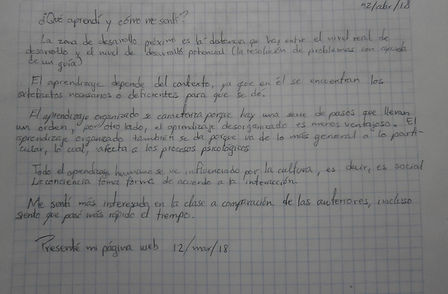 12/abr/18
¿Qué aprendí y cómo me sentí?
La zona de desarrollo próximo es la distancia que hay entre el nivel real de
desarrollo y el nivel de desarrollo potencial (la resolución de problemas con ayuda
de un guía)
El aprendizaje depende del contexto, ya que en él se encuentran los
artefactos necesarios o deficientes para que se dé.
El aprendizaje organizado se caracteriza porque hay una serie de pasos que llevan
un orden, por otro lado, el aprendizaje desorganizado es menos ventajoso. El
aprendizaje organizado también se da porque va de lo más general a lo parti-
cular, lo cual, afecta a los procesos psicológicos
Todo el aprendizaje humano se ve influenciado por la cultura, es decir, es social
La conciencia toma forma de acuerdo a la interacción.
Me sentí más interesada en la clase a comparación de las anteriores, incluso
siento que pasó más rápido el tiempo.
Presenté mi página web 12/mar/18